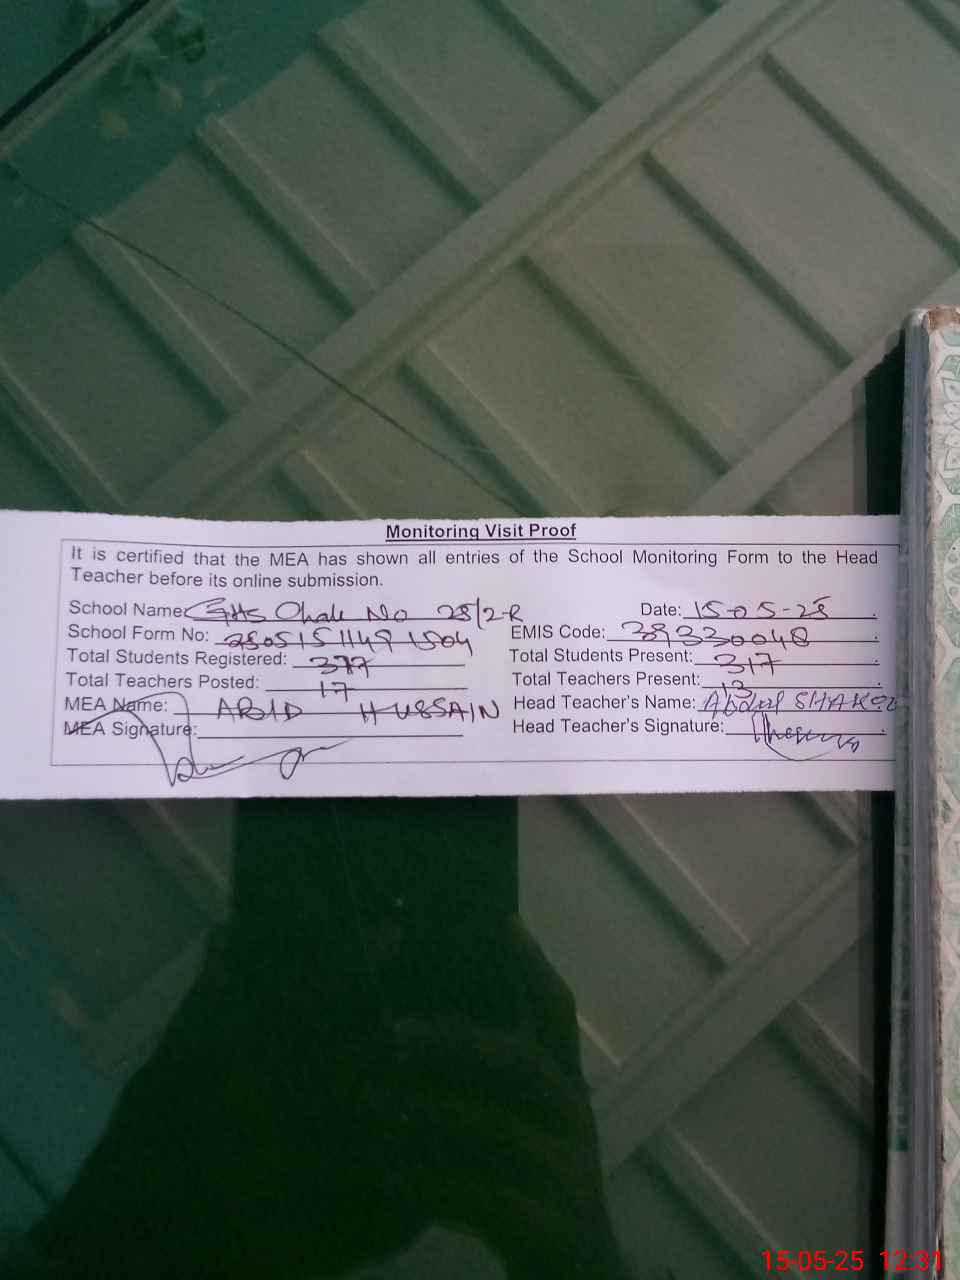 Monitoring Visit Proof
It is certified that the MEA has shown all entries of the School Monitoring Form to the Head
Teacher before its online submission.
School Name: GHS Chak No 28/2-R Date: 15-05-25
School Form No: EMIS Code: 39330048
Total Students Registered: 377 Total Students Present: 317
Total Teachers Posted: 17 Total Teachers Present: 13
MEA Name: ABID HUSSAIN Head Teacher's Name: Abdul
MEA Signature: Head Teacher's Signature:
15-05-25 12:31